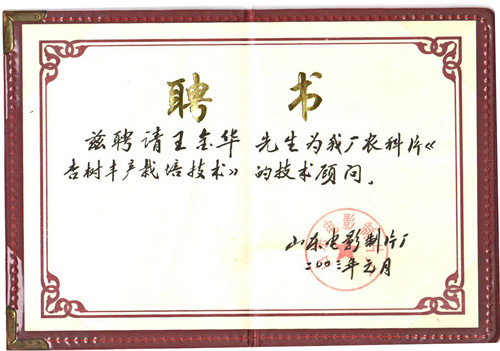 聘 书
兹聘请王金华 先生为我厂农科片《
杏树丰产栽培技术》的技术顾问。
山东电影制片厂
二〇〇三年元月